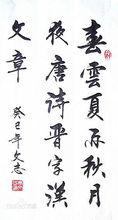 春雲夏雨秋月
夜唐詩晋字漢
文章
癸巳年文志